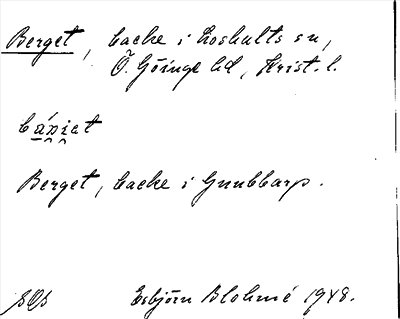 Berget, backe i Loshults sn,
Ö. Göinge hd, Krist. l.
Berget, backe i Gnubbarp.
Esbjörn Blohmé 1948.